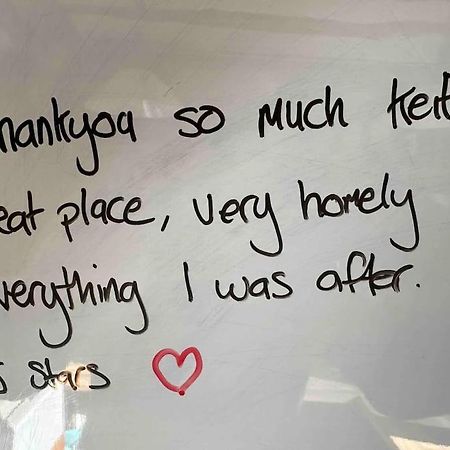 hankyou so much Keit
eat place, very homely
verything I was after.
5 stars